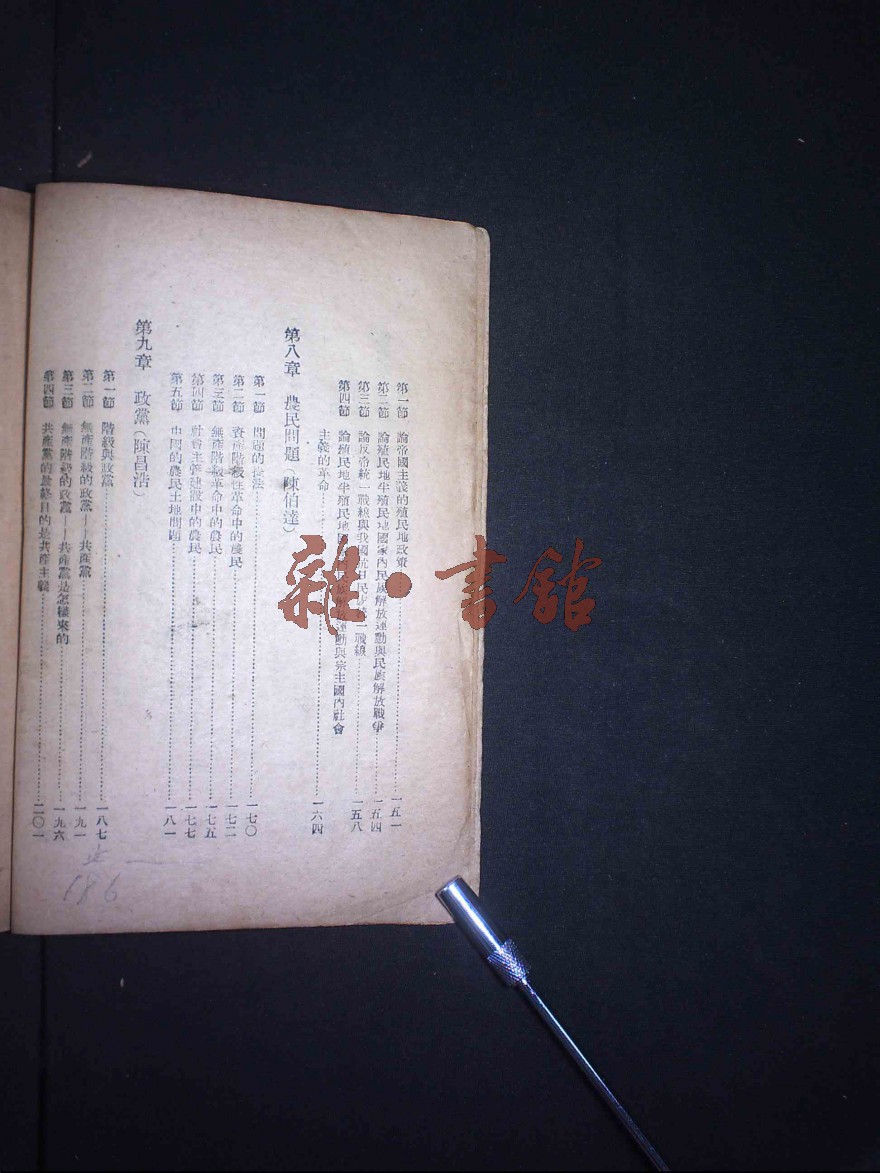 第一節　論帝國主義的殖民地政策……一五一
第二節　論殖民地半殖民地國家內民族解放運動與民族解放戰爭……一五四
第三節　論反帝統一戰線與我國抗日民族統一戰線……一五八
第四節　論殖民地半殖民地國 民族解放運動與宗主國內社會
主義的革命……一六四
第八章　農民問題（陳伯達）
第一節　問題的提法……一七〇
第二節　資產階級性革命中的農民……一七二
第三節　無產階級革命中的農民……一七五
第四節　社會主義建設中的農民……一七七
第五節　中國的農民土地問題……一八一
第九章　政黨（陳昌浩）
第一節　階級與政黨……一八七
第二節　無產階級的政黨——共產黨……一九一
第三節　無產階級的政黨——共產黨是怎樣來的……一九六
第四節　共產黨的最終目的是共產主義……二〇一
186
雜·書館